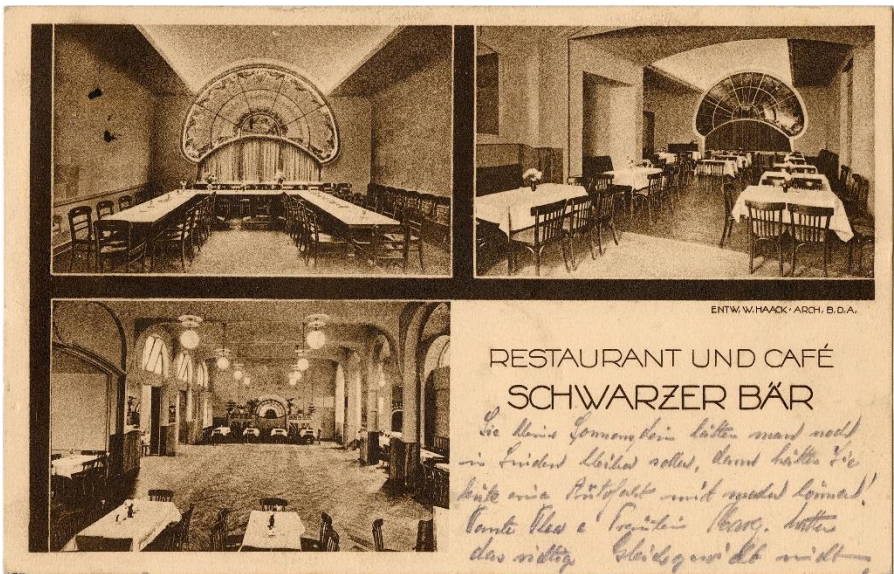 ENTW. W. HAACK · ARCH. B.D.A.
RESTAURANT UND CAFÉ
SCHWARZER BÄR
Sie kleine Sonnen hätten man noch
in Linden bleiben sollen, dann hätten Sie
heute eine Autofahrt mit machen können!
Tante u Fräulein hatten
das richtige nicht